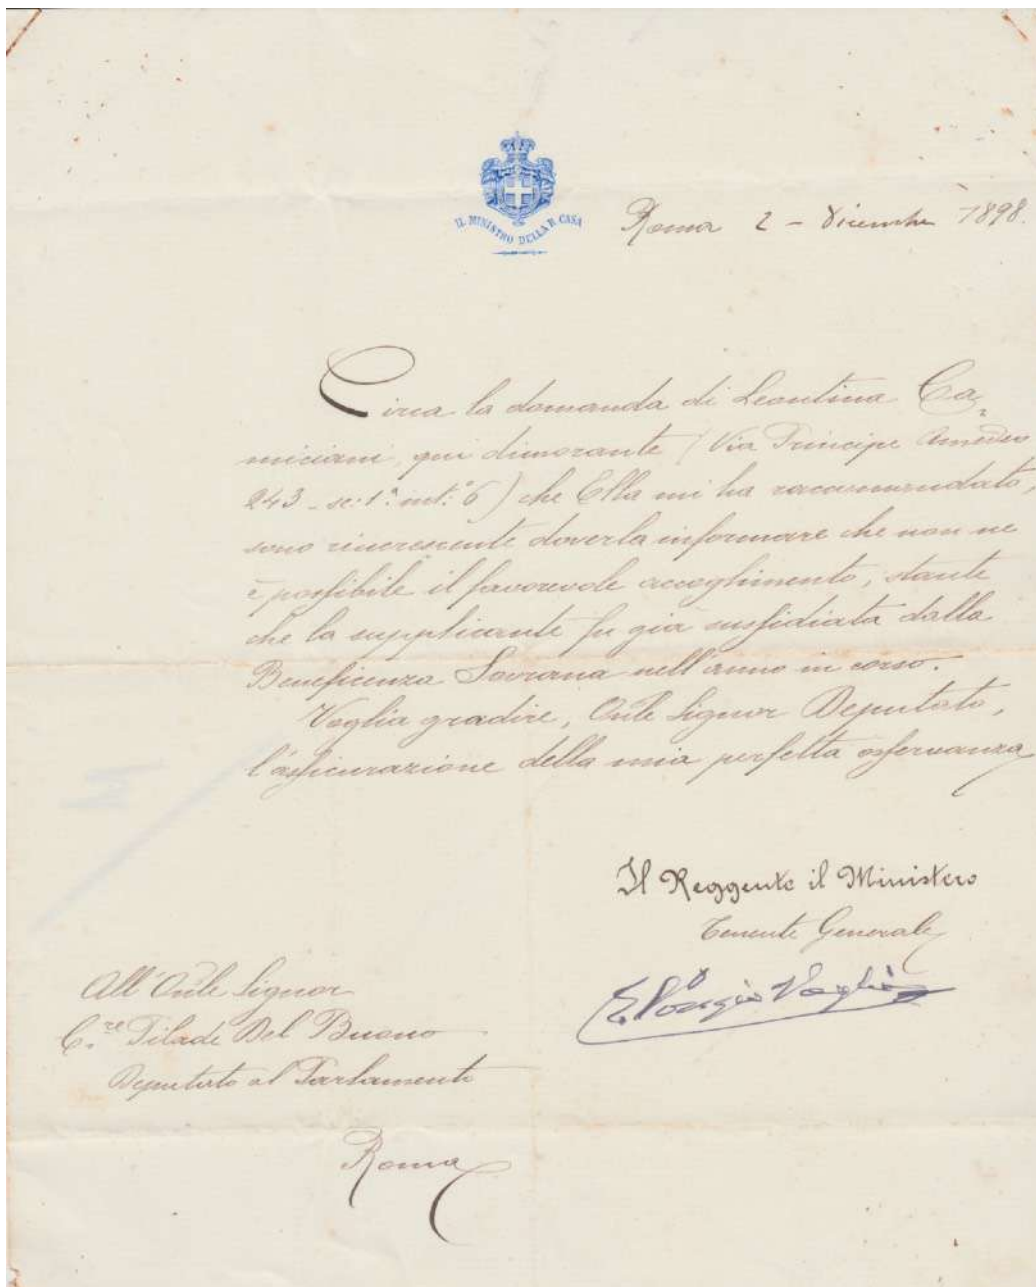 IL MINISTRO DELLA R. CASA
Roma 2 - Dicembre 1898.
Circa la domanda di Leontina Ca-
miciani, qui dimorante (Via Principe Amedeo
243 - sc: 1ª int: º 6) che Ella mi ha raccomandato,
sono rincrescente doverla informare che non ne
è possibile il favorevole accoglimento, stante
che la supplicante fu già sussidiata dalla
Beneficenza Sovrana nell'anno in corso.
Voglia gradire, Onle Signor Deputato,
l'assicurazione della mia perfetta osservanza
Il Reggente il Ministero
Tenente Generale
E. Ponzio Vaglia
All'Onle Signor
C.re Pilade Del Buono
Deputato al Parlamento
Roma